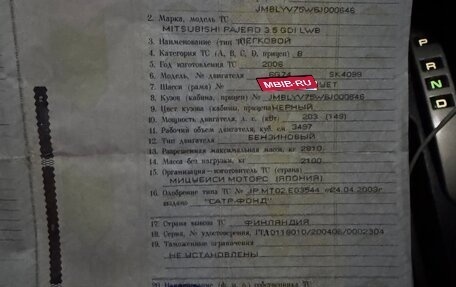 JMBLYV75W6J000646
2. Марка, модель ТС
MITSUBISHI PAJERO 3.5 GDI LWB
3. Наименование (тип ТС) ЛЕГКОВОЙ
4. Категория ТС (А, В, С, D, прицеп) В
5. Год изготовления ТС 2006
6. Модель, № двигателя 6G74 SK4099
7. Шасси (рама) №
MBIB.RU
8. Кузов (кабина, прицеп) № JMBLYV75W6J000646
9. Цвет кузова (кабины, прицепа) ЧЕРНЫЙ
10. Мощность двигателя, л. с. (кВт) 203 (149)
11. Рабочий объем двигателя, куб. см 3497
12. Тип двигателя БЕНЗИНОВЫЙ
13. Разрешенная максимальная масса, кг 2810
14. Масса без нагрузки, кг 2100
15. Организация-изготовитель ТС (страна)
МИЦУБИСИ МОТОРС (ЯПОНИЯ)
16. Одобрение типа ТС № JP.МТ02.Е03544 «24.04.2003г
выдано "САТР-ФОНД"
17. Страна вывоза ТС ФИНЛЯНДИЯ
18. Серия, № 
19. Таможенные ограничения
НЕ УСТАНОВЛЕНЫ
P
R
N
D